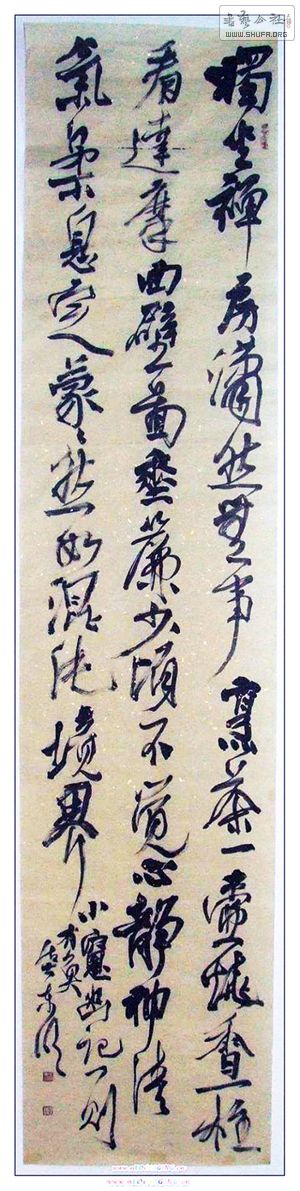 书艺公社
WWW.SHUFA.ORG
獨坐禪房瀟然無事烹茶一壺燒香一炷
看達摩面壁圖垂簾少頃不覺心静神清
氣柔息定蒙〻然如混沌境界
小窻幽記一則